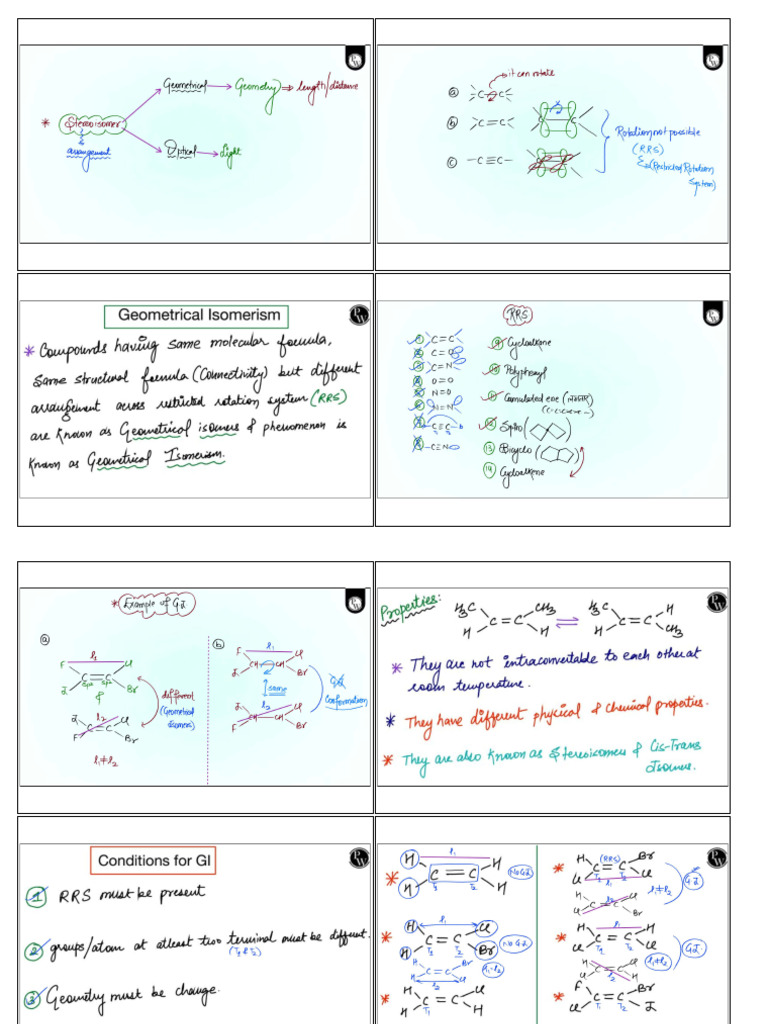 Geometrical → Geometry ⇒ length/distance
* Stereoisomer
arrangement
Optical → light
it can rotate
(a) C-C
(b) C=C
(c) -C≡C-
Rotation not possible
(RRS)
(Restricted Rotation
System)
Geometrical Isomerism
* Compounds having same molecular formula,
same structural formula (Connectivity) but different
arrangement across restricted rotation system (RRS)
are known as Geometrical isomers & phenomenon is
known as Geometrical Isomerism.
RRS
1 C=C
2 C=O
3 C=N
4 O=O
5 N=O
6 N=N
7 C≡C
8 -C≡N
9 Cycloalkane
10 Polyphenyl
Cumulated ene
12 Spiro
13 Bicyclo
14 Cycloalkene
* Example of GI
(a)
F l1 Cl
C=C
I Br
&
I l2 Cl
C=C
F Br
l1≠l2
different
(Geometrical
isomers)
(b)
F l1 Cl
CH CH
I Br
same
I l2 Cl
CH CH
F Br
GI
Conformation
Properties:
H3C CH3
C=C
H H
⇌
H3C H
C=C
H CH3
* They are not intraconvertable to each other at
room temperature.
* They have different physical & chemical properties.
* They are also known as Stereoisomers & Cis-Trans
Isomers.
Conditions for GI
1 RRS must be present
2 groups/atom at atleast two terminal must be different.
(T1 & T2)
3 Geometry must be change.
* H l1 H
C=C
H T1 T2 H
No GI
* H l1 Cl
C=C
H T1 T2 Br
No GI
H Br
C=C
H l2 Cl
l1=l2
* H Cl
C=C
H T1 H
* H (RRS) Br
C=C
Cl T1 T2 Cl
l1
l1≠l2
GI
H l2 Cl
C=C
Cl Br
* H l1 H
C=C
Cl T1 T2 Cl
GI
H Cl
C=C
Cl H
l1≠l2
* F Br
C=C
Cl T1 T2 I